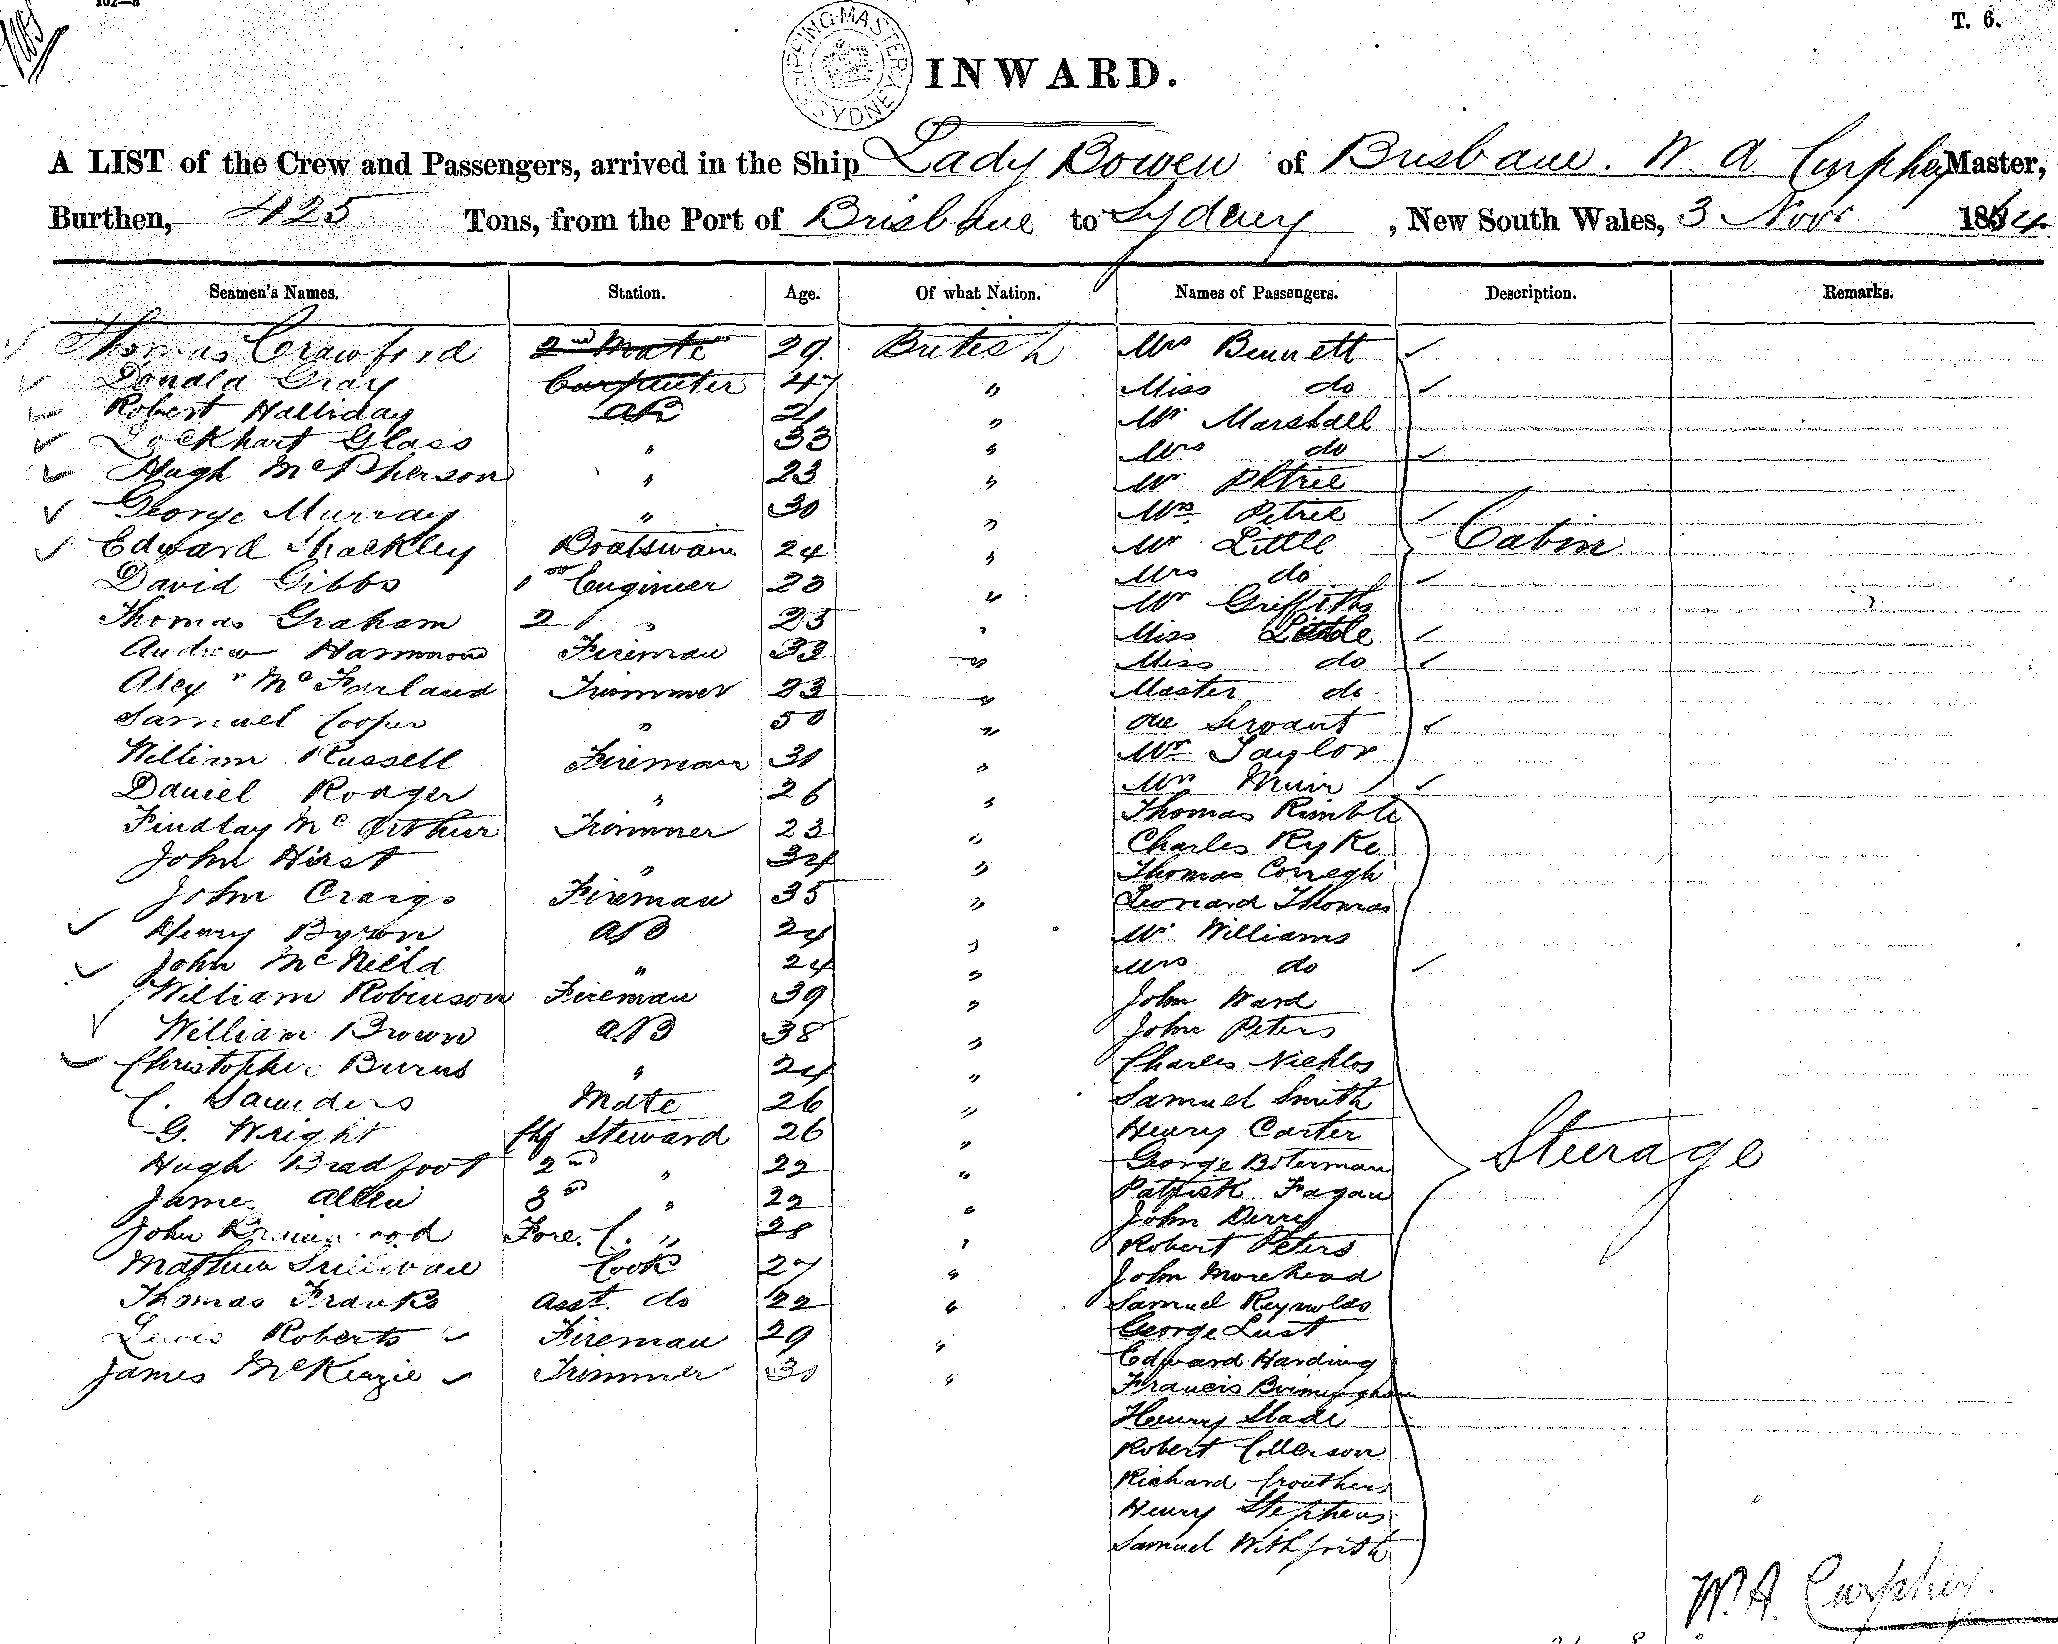 102—8
T. 6.
SHIPPING MASTER SYDNEY
INWARD.
A LIST of the Crew and Passengers, arrived in the Ship Lady Bowen of Brisbane. W A Curphey Master,
Burthen, 425 Tons, from the Port of Brisbane to Sydney, New South Wales, 3 Novr 1864.
Seamen's Names. Station. Age. Of what Nation. Names of Passengers. Description. Remarks.
Thomas Crawford 2nd Mate 29 British Mrs Bennett
Donald Gray Carpenter 47 " Miss do
Robert Halliday AB 21 " Mr Marshall
Lockhart Glass " 33 " Mrs do
Hugh McPherson " 23 " Mr Petrie
George Murray " 30 " Mrs Petrie
Edward Shackley Boatswain 24 " Mr Little Cabin
David Gibbs 1st Engineer 23 " Mrs do
Thomas Graham 2 " 25 " Mr Griffiths
Andrew Hammond Fireman 33 " Miss Little
Alexr McFarland Trimmer 23 " Miss do
Samuel Cooper " 50 " Master do
William Russell Fireman 30 " One Servant
Daniel Rodger " 26 " Mr Taylor
Findlay McArthur Trimmer 23 " Mrs Muir
John Hirst " 34 " Thomas Rimble
John Craig Fireman 35 " Charles Ryke
Henry Byron AB 24 " Thomas Corregh
John McNield " 24 " Leonard Thomas
William Robinson Fireman 39 " Mr Williams
William Brown AB 38 " Mrs do
Christopher Burns " 24 " John Ward
C. Saunders Mate 26 " John Peters
G. Wright Chf Steward 26 " Charles Nicklos
Hugh Bradfoot 2nd " 22 " Samuel Smith
James Allen 3rd " 22 " Henry Carter
John Fore. C. " 28 " George Boterman Steerage
Matthew Sullivan Cook 27 " Patrick Fagan
Thomas Franks Asst. do 22 " John Derry
Lewis Roberts Fireman 29 " Robert Peters
James McKenzie Trimmer 30 " John Morehead
Samuel Reynolds
George Lust
Edward Harding
Francis Birmingham
Henry Slade
Robert Collerson
Richard Crouthers
Henry Stephens
Samuel Withfrith
W. A. Curphey.